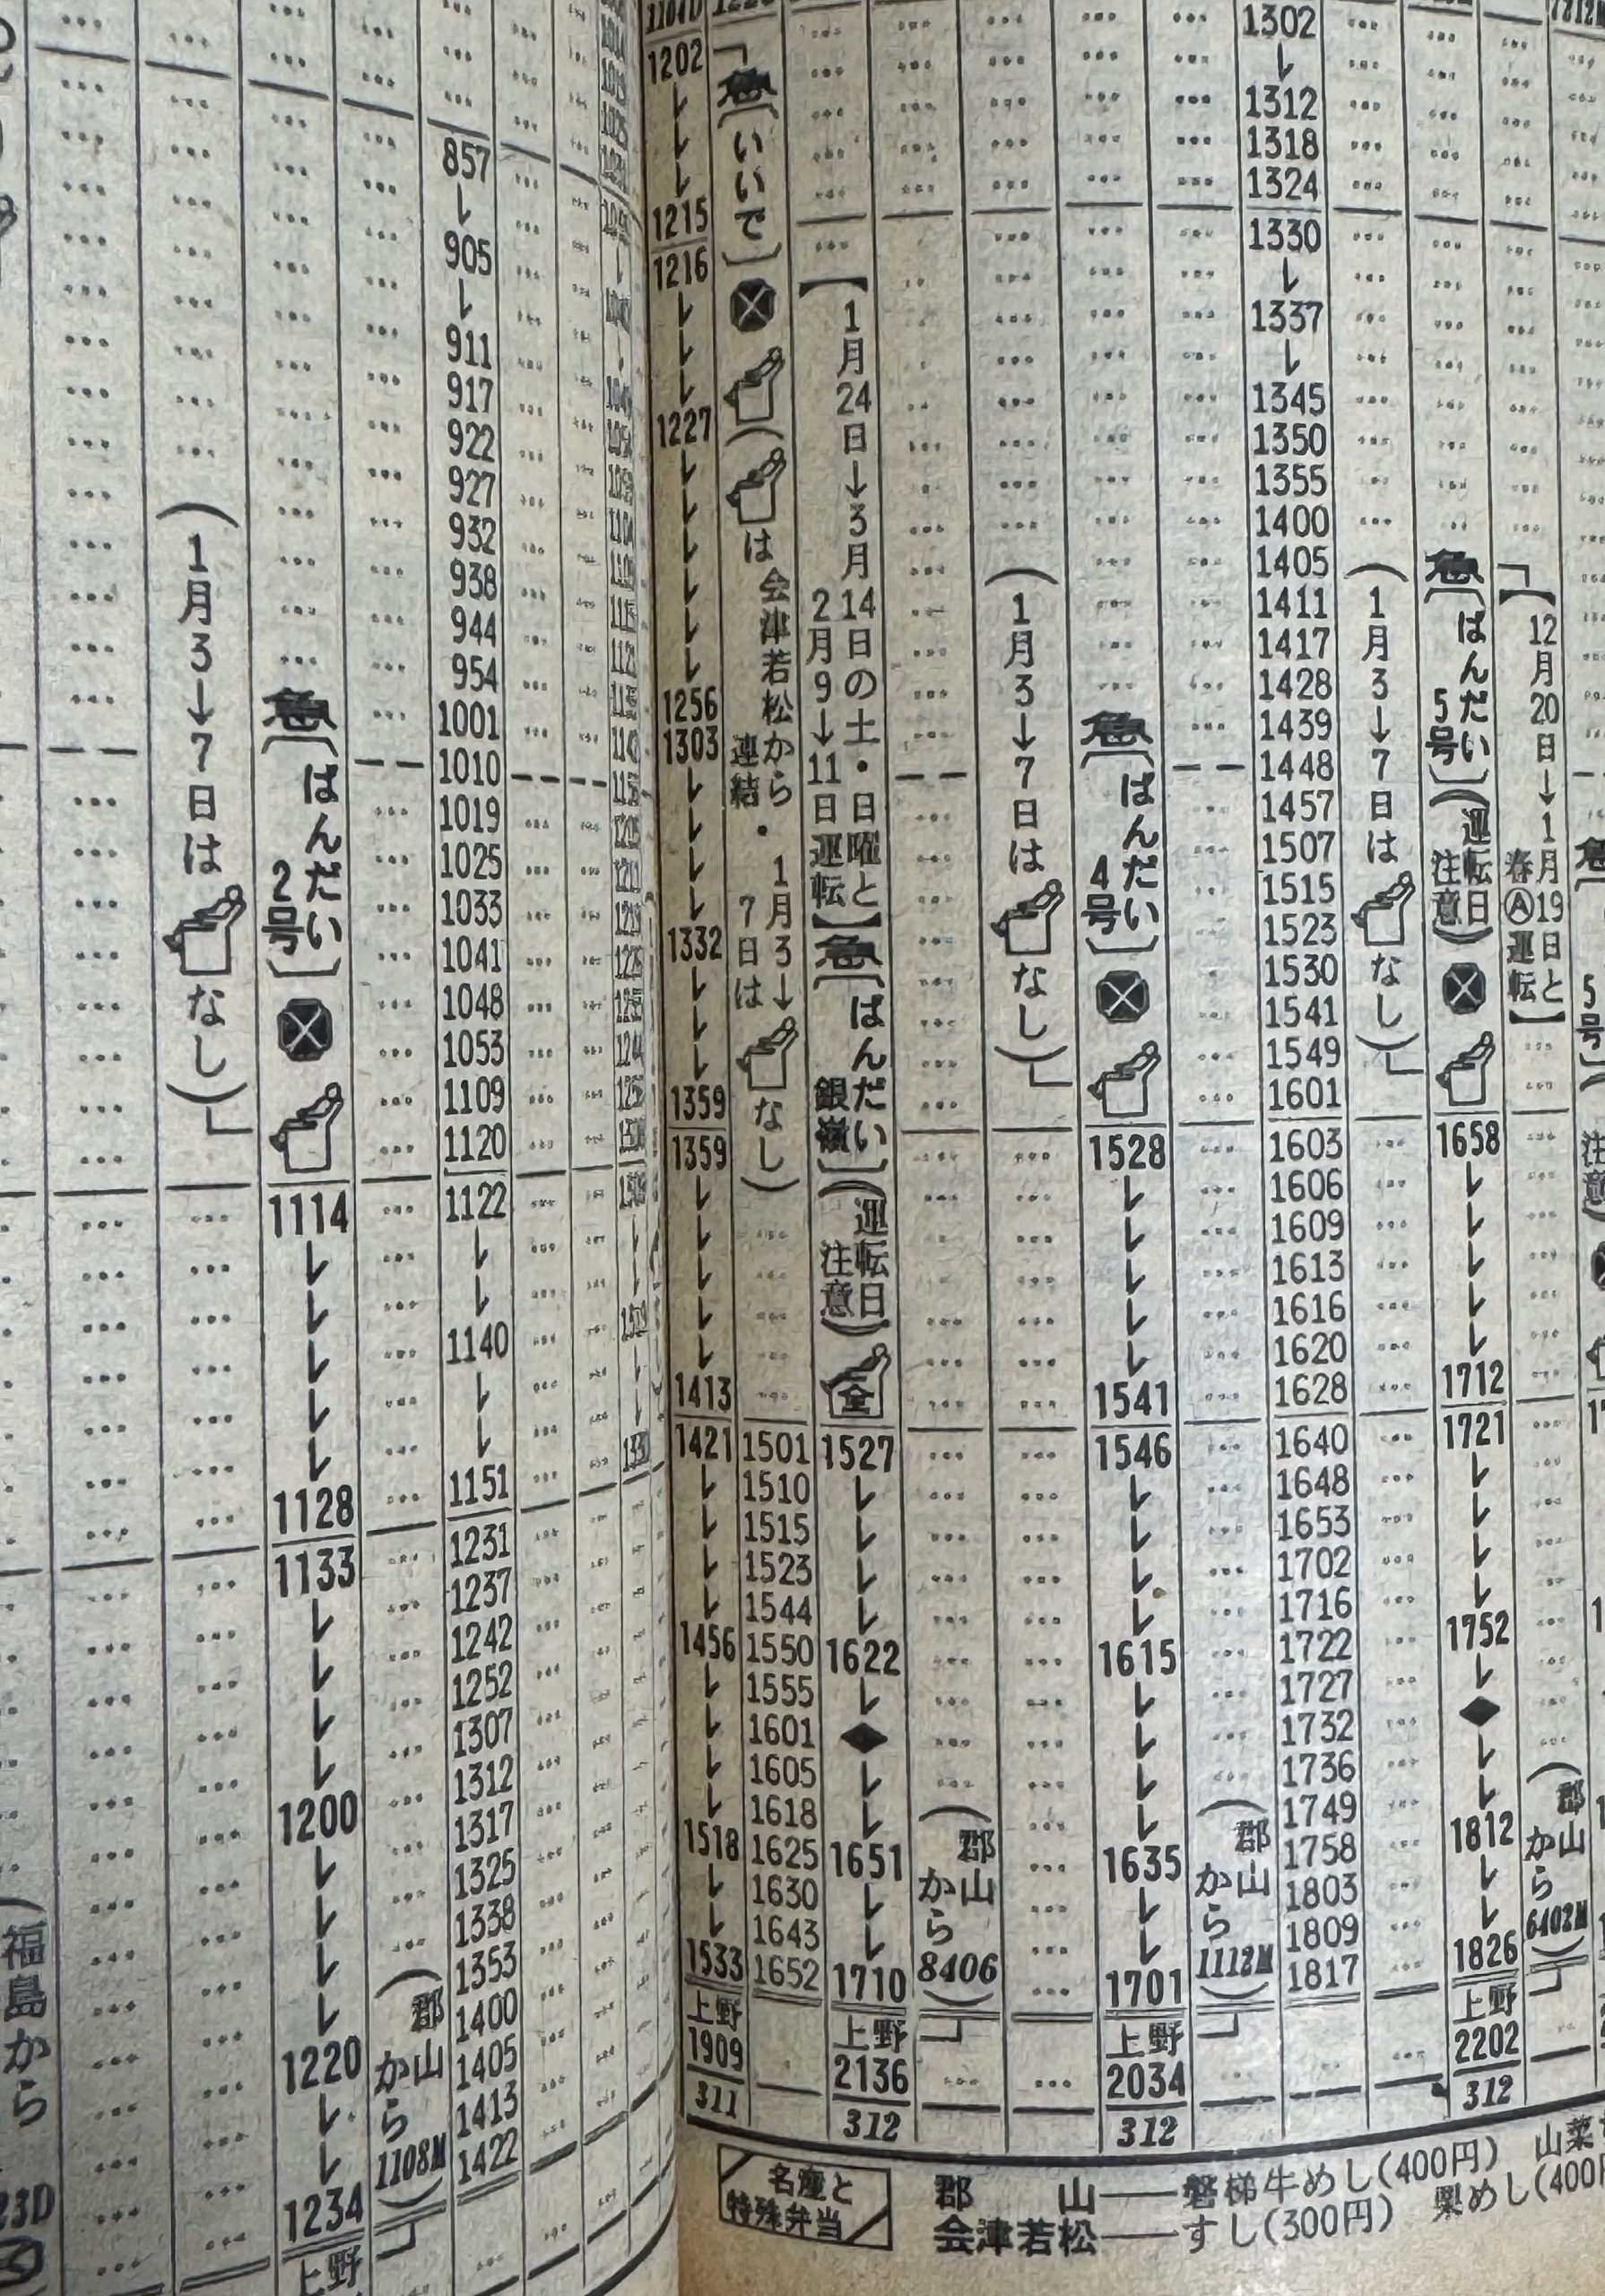 857
905
911
917
922
927
932
938
944
954
1001
1010
1019
1025
1033
1041
1048
1053
1109
1120
1122
1140
1151
1231
1237
1242
1252
1307
1312
1317
1325
1338
1353
1400
1405
1413
1422
(1月3→7日は なし)
急
(ばんだい2号)
1114
1128
1133
1200
1220
1234
上野
(郡山から1108M)
(福島から
23D
1202
1215
1216
1227
1256
1303
1332
1359
1359
1413
1421
1456
1518
1533
上野
1909
311
急
(いいで)
(は会津若松から連結・1月3→7日は なし)
1501
1510
1515
1523
1544
1550
1555
1601
1605
1618
1625
1630
1643
1652
【1月24日→3月14日の土・日曜と2月9→11日運転】
急
(ばんだい銀嶺)
(運転日注意)
全
1527
1622
1651
1710
上野
2136
312
(郡山から8406)
(1月3→7日は なし)
急
(ばんだい4号)
1528
1541
1546
1615
1635
1701
上野
2034
312
(郡山から1112M)
1302
1312
1318
1324
1330
1337
1345
1350
1355
1400
1405
1411
1417
1428
1439
1448
1457
1507
1515
1523
1530
1541
1549
1601
1603
1606
1609
1613
1616
1620
1628
1640
1648
1653
1702
1716
1722
1727
1732
1736
1749
1758
1803
1809
1817
(1月3→7日は なし)
急
(ばんだい5号)
(運転日注意)
1658
1712
1721
1752
1812
1826
上野
2202
312
【12月20日→1月19日と春Ⓐ運転】
(郡山から6402M)
急
5号)
名産と特殊弁当
郡山——磐梯牛めし(400円) 山菜
会津若松——すし(300円) 栗めし(400円